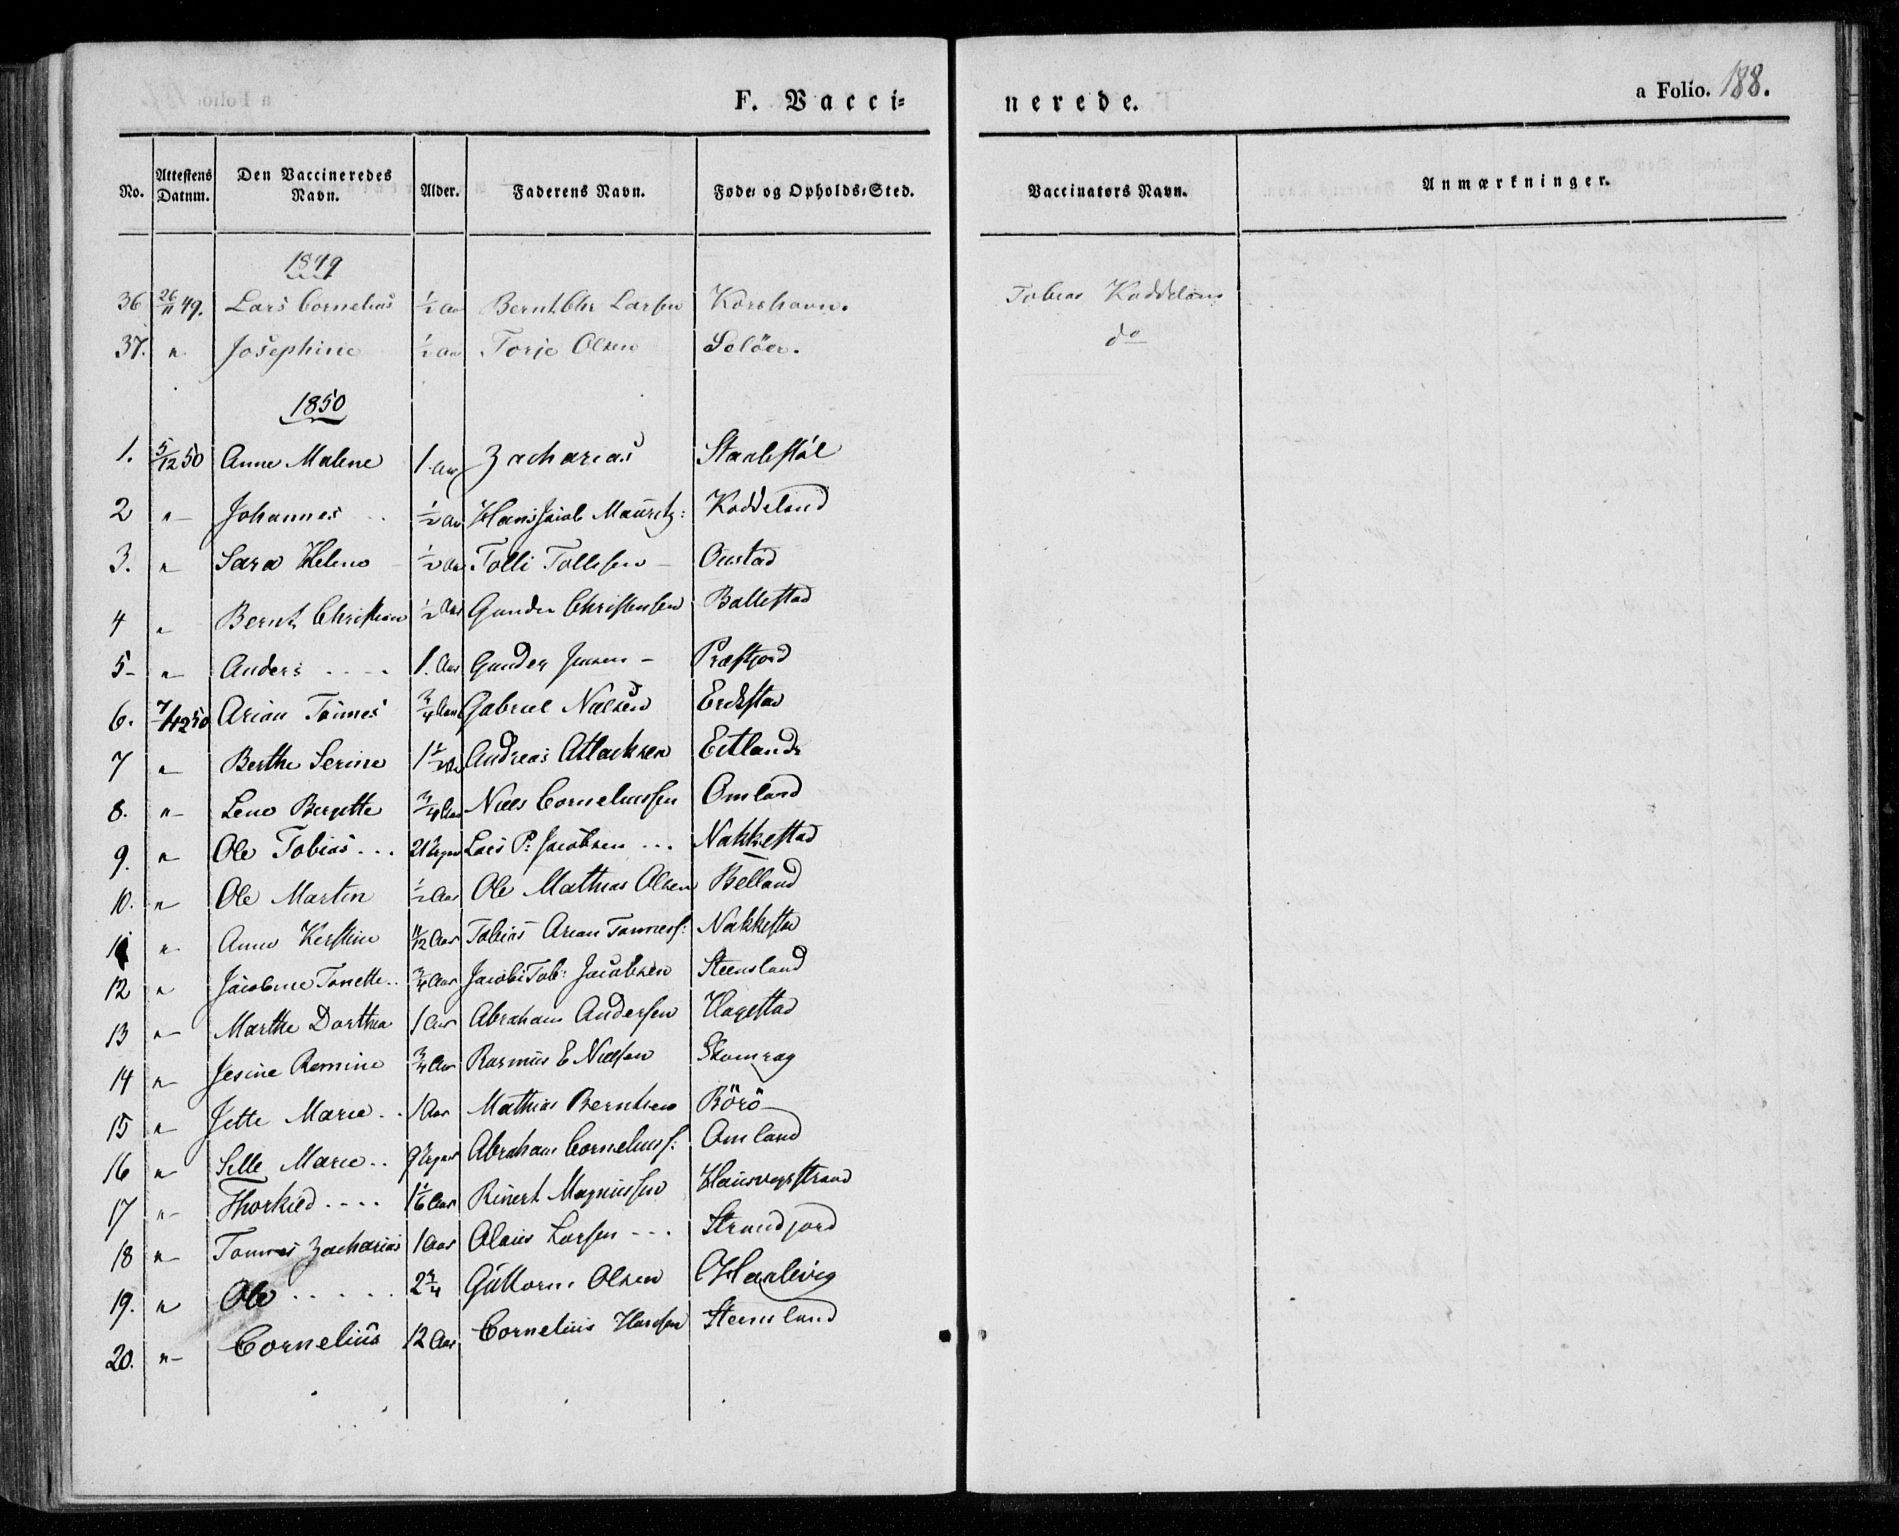 F. Vacci=
nerede.
a Folio. 188.
No. Attestens Datum. Den Vaccineredes Navn. Alder. Faderens Navn. Føde= og Opholds=Sted. Vaccinators Navn. Anmærkninger.
1849
36 26/11 49. Lars Cornelius 1/2 Aar Bernt Chr Larsen Korshavn. Tobias Koddeland
37. " Josephine 1/2 Aar Torje Olsen Selöer. do
1850
1. 5/12 50 Anne Malene 1. Aar Zacharias Staalestöl
2 " Johannes .. 1/2 Aar Hans Jacob Mauritz: Koddeland
3. " Sara Helene 1/2 Aar Tolli Tollefsen Oustad
4 " Bernt Christian 1/2 Aar Gunder Christensen Ballestad
5 " Anders .... 1. Aar Gunder Jensen Præstjord
6. 7/12 50 Arian Tönnes 3/4 Aar Gabriel Nielsen Erikstad
7 " Berthe Serine 1 1/2 Aar Andreas Atlacksen Eitland
8. " Lene Bergitte 3/4 Aar Niels Corneliussen Omland
9. " Ole Tobias ... 21 Uger Lars P: Jacobsen ... Nakkestad
10. " Ole Martin 1/2 Aar Ole Mathias Olsen Belland
11 " Anne Kerstine 11/12 Aar Tobias Arian Tönness: Nakkestad
12 " Jacobine Tonette .. 3/4 Aar Jacob Tob: Jacobsen Steensland
13 " Marthe Dorthea 1 Aar Abraham Andersen Hagestad
14 " Jesine Romine 3/4 Aar Rasmus E Nielsen Skomrag
15 " Jette Marie .. 1 Aar Mathias Berntsen Börö
16 " Sille Marie .. 9 Uger Abraham Cornelius: Omland
17 " Thorkild .... 1 1/6 Aar Reinert Magnussen Hausvigstrand
18 " Tönnes Zacharias 1 Aar Olaus Larsen ... Strandjord
19. " Ole ..... 2 3/4 Guttorm Olsen Haalevig
20. " Cornelius 12 Aar Cornelius Hansen Steensland